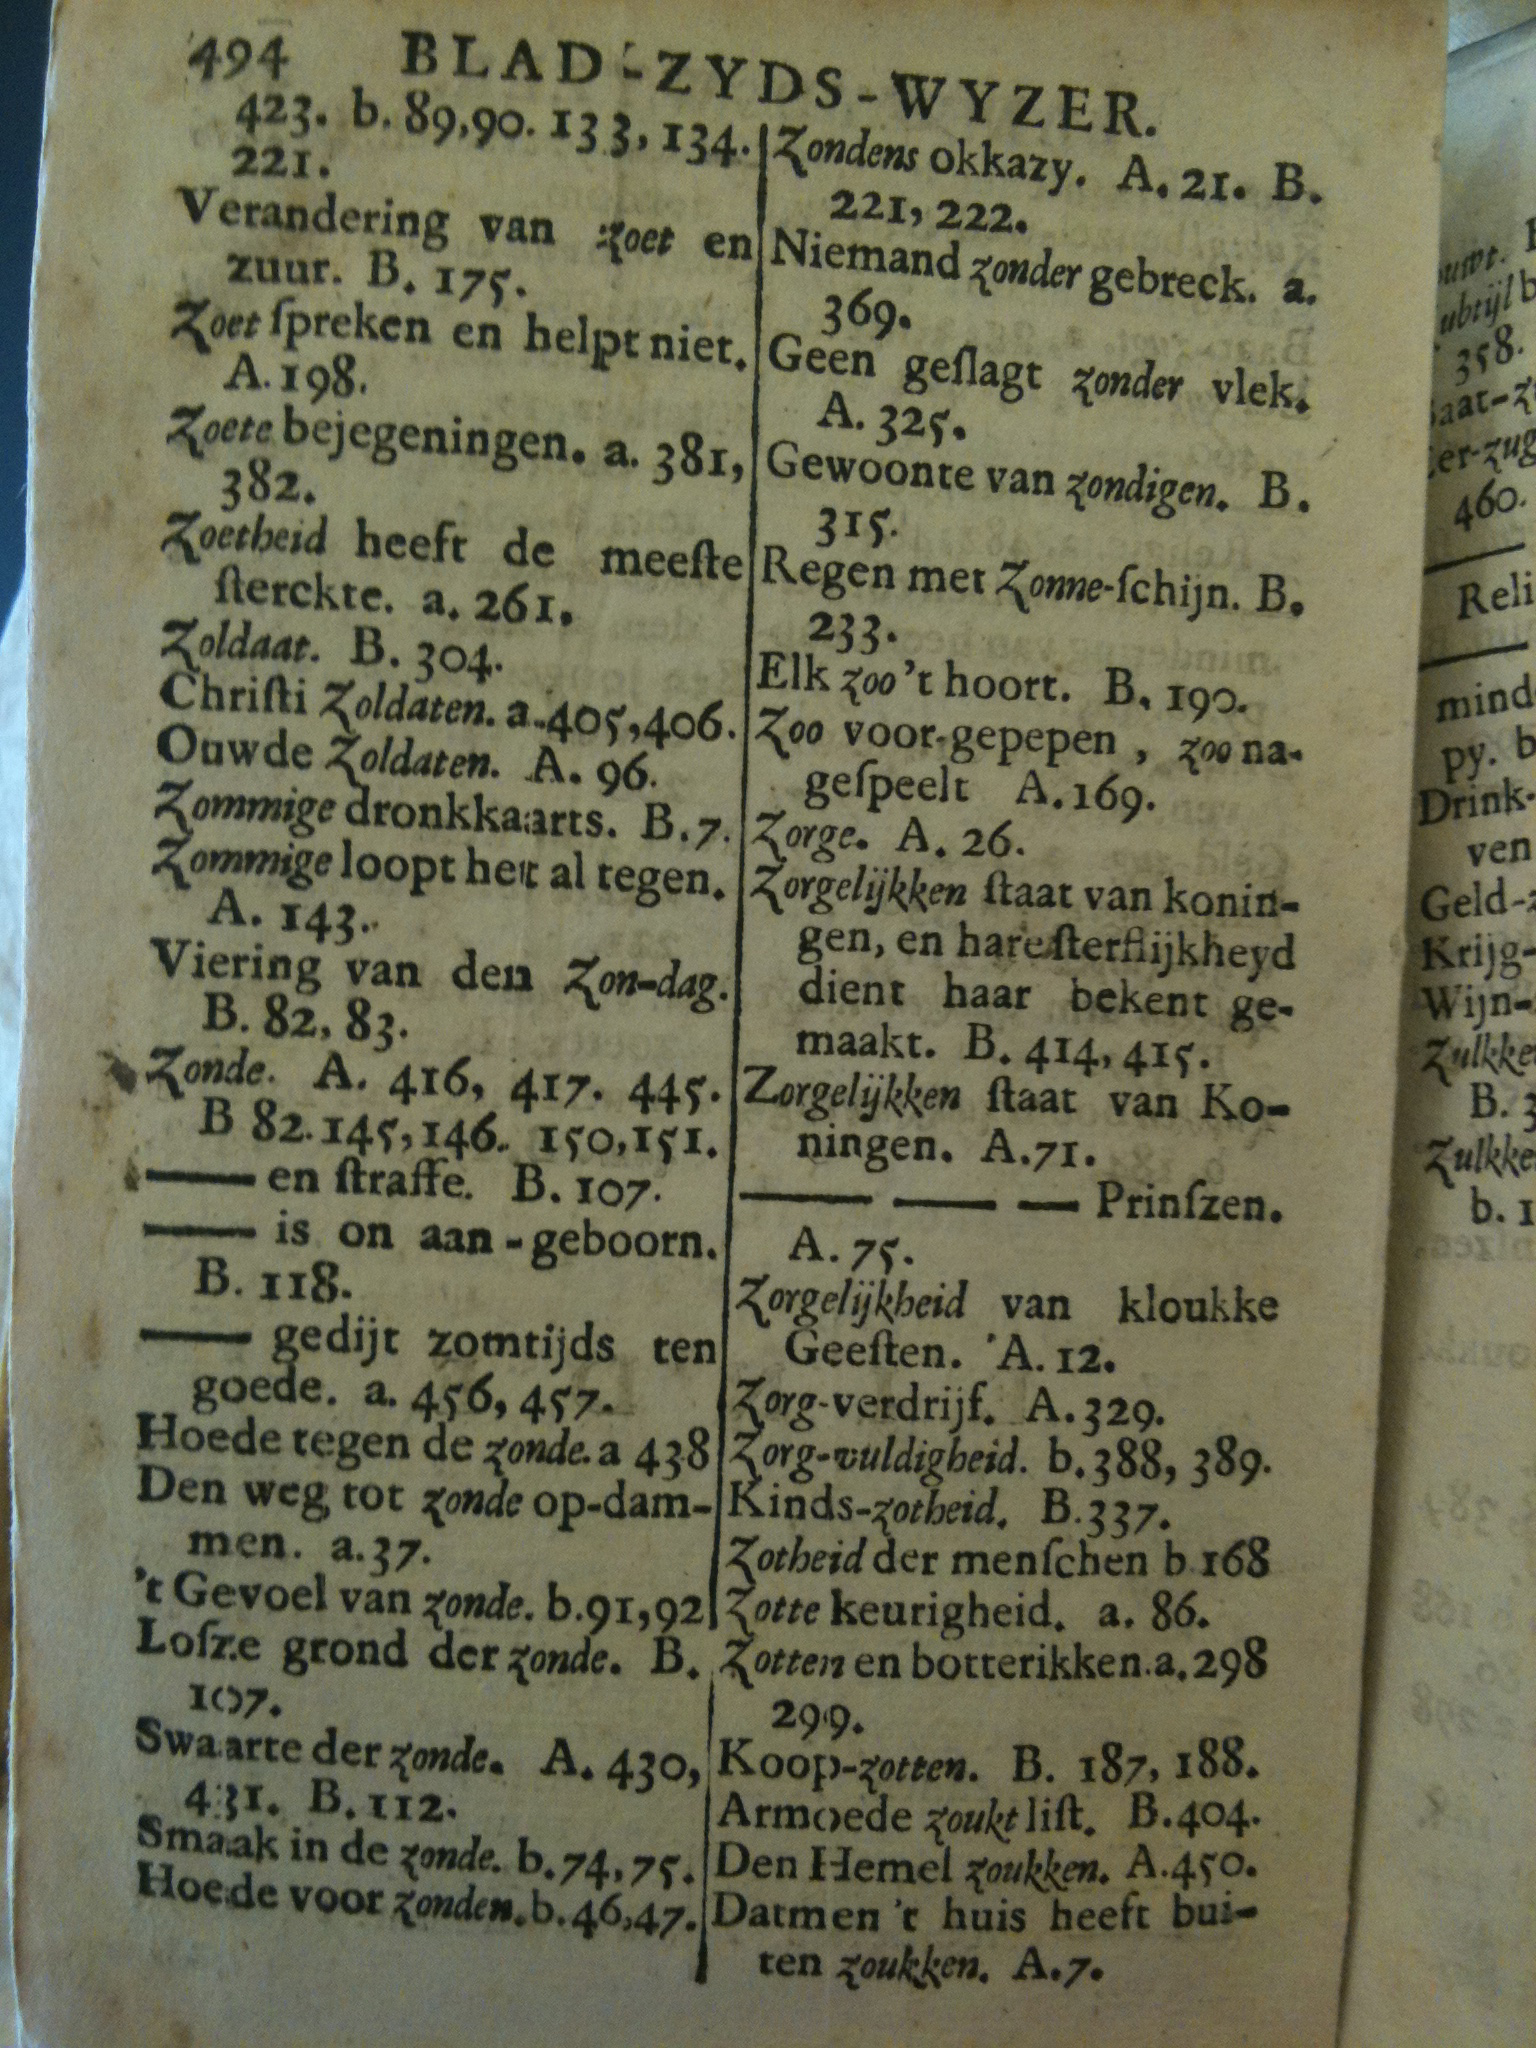 494 BLAD-ZYDS-WYZER.
423. b. 89,90. 133, 134.
221.
Verandering van zoet en
zuur. B. 175.
Zoet ſpreken en helpt niet.
A. 198.
Zoete bejegeningen. a. 381,
382.
Zoetheid heeft de meeſte
ſterckte. a. 261.
Zoldaat. B. 304.
Chriſti Zoldaten. a. 405, 406.
Ouwde Zoldaten. A. 96.
Zommige dronkkaarts. B. 7.
Zommige loopt het al tegen.
A. 143.
Viering van den Zon-dag.
B. 82, 83.
Zonde. A. 416, 417. 445.
B 82. 145, 146. 150, 151.
—— en ſtraffe. B. 107.
—— is on aan-geboorn.
B. 118.
—— gedijt zomtijds ten
goede. a. 456, 457.
Hoede tegen de zonde. a 438
Den weg tot zonde op-dam-
men. a. 37.
't Gevoel van zonde. b. 91, 92
Lofze grond der zonde. B.
107.
Swaarte der zonde. A. 430,
431. B. 112.
Smaak in de zonde. b. 74, 75.
Hoede voor zonden. b. 46, 47.
Zondens okkazy. A. 21. B.
221, 222.
Niemand zonder gebreck. a.
369.
Geen geſlagt zonder vlek.
A. 325.
Gewoonte van zondigen. B.
315.
Regen met Zonne-ſchijn. B.
233.
Elk zoo 't hoort. B. 190.
Zoo voor-gepepen, zoo na-
geſpeelt A. 169.
Zorge. A. 26.
Zorgelijkken ſtaat van konin-
gen, en hare ſterflijkheyd
dient haar bekent ge-
maakt. B. 414, 415.
Zorgelijkken ſtaat van Ko-
ningen. A. 71.
—— —— —— Prinſzen.
A. 75.
Zorgelijkheid van kloukke
Geeſten. A. 12.
Zorg-verdrijf. A. 329.
Zorg-vuldigheid. b. 388, 389.
Kinds-zotheid. B. 337.
Zotheid der menſchen b 168
Zotte keurigheid. a. 86.
Zotten en botterikken. a. 298
299.
Koop-zotten. B. 187, 188.
Armoede zoukt liſt. B. 404.
Den Hemel zoukken. A. 450.
Datmen 't huis heeft bui-
ten zoukken. A. 7.
358.
460.
Reli
mind
py. b
Drink-
ven
Geld-z
Krijg-
Wijn-
Zulkke
B. 3
Zulkke
b. 1